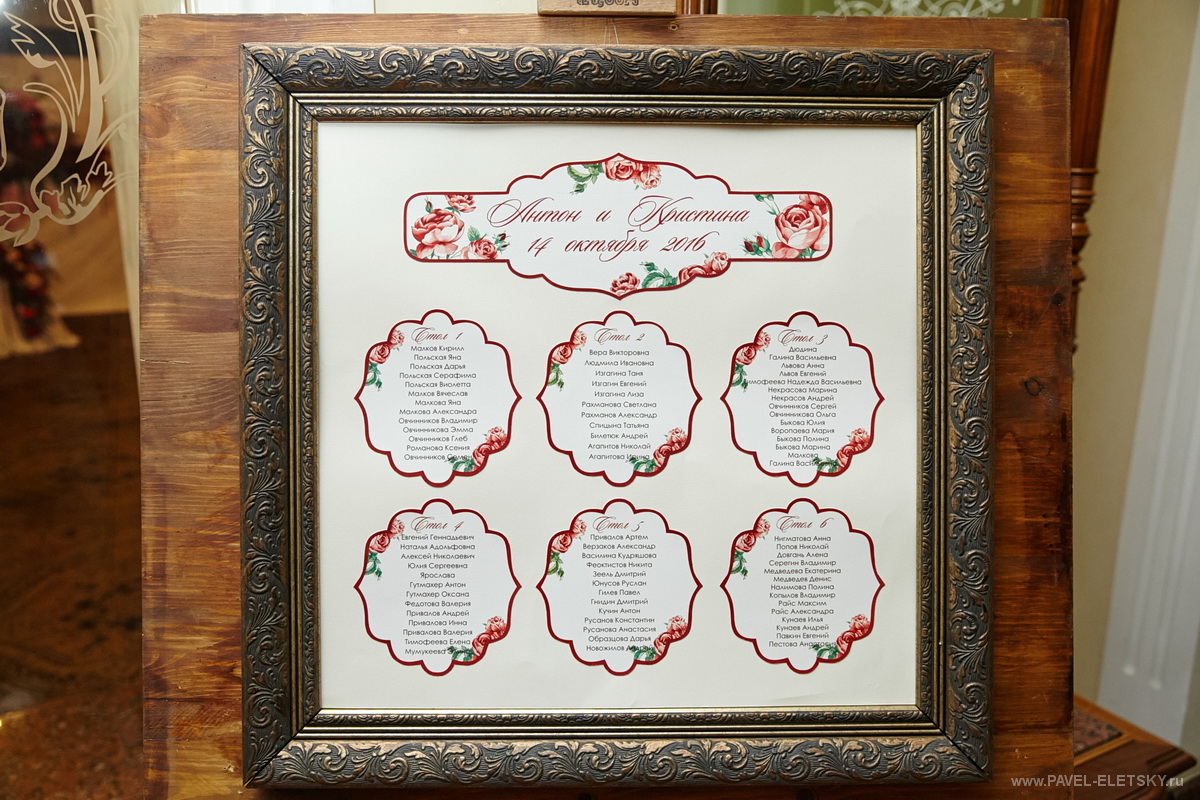 Антон и Кристина
14 октября 2016
Стол 1
Малков Кирилл
Польская Яна
Польская Дарья
Польская Серафима
Польская Виолетта
Малков Вячеслав
Малкова Яна
Малкова Александра
Овчинников Владимир
Овчинникова Эмма
Овчинников Глеб
Романова Ксения
Овчинников Семен
Стол 2
Вера Викторовна
Людмила Ивановна
Изгагина Таня
Изгагин Евгений
Изгагина Лиза
Рахманова Светлана
Рахманов Александр
Спицына Татьяна
Билетюк Андрей
Агапитов Николай
Агапитова Ирина
Стол 3
Дюдина
Галина Васильевна
Львова Анна
Львов Евгений
Тимофеева Надежда Васильевна
Некрасова Марина
Некрасов Андрей
Овчинников Сергей
Овчинникова Ольга
Быкова Юлия
Воропаева Мария
Быкова Полина
Быкова Марина
Малкова
Галина Васильевна
Стол 4
Евгений Геннадьевич
Наталья Адольфовна
Алексей Николаевич
Юлия Сергеевна
Ярослава
Гутмахер Антон
Гутмахер Оксана
Федотова Валерия
Привалов Андрей
Привалова Инна
Привалова Валерия
Тимофеева Елена
Мумукеева
Стол 5
Привалов Артем
Верзаков Александр
Василина Кудряшова
Феоктистов Никита
Зеель Дмитрий
Юнусов Руслан
Гилев Павел
Гнидин Дмитрий
Кучин Антон
Русанов Константин
Русанова Анастасия
Образцова Дарья
Новожилов Андрей
Стол 6
Нигматова Анна
Попов Николай
Довгань Алена
Серегин Владимир
Медведева Екатерина
Медведев Денис
Налимова Полина
Копылов Владимир
Райс Максим
Райс Александра
Кунаев Илья
Кунаев Андрей
Павкин Евгений
Пестова Анастасия
www.PAVEL-ELETSKY.ru